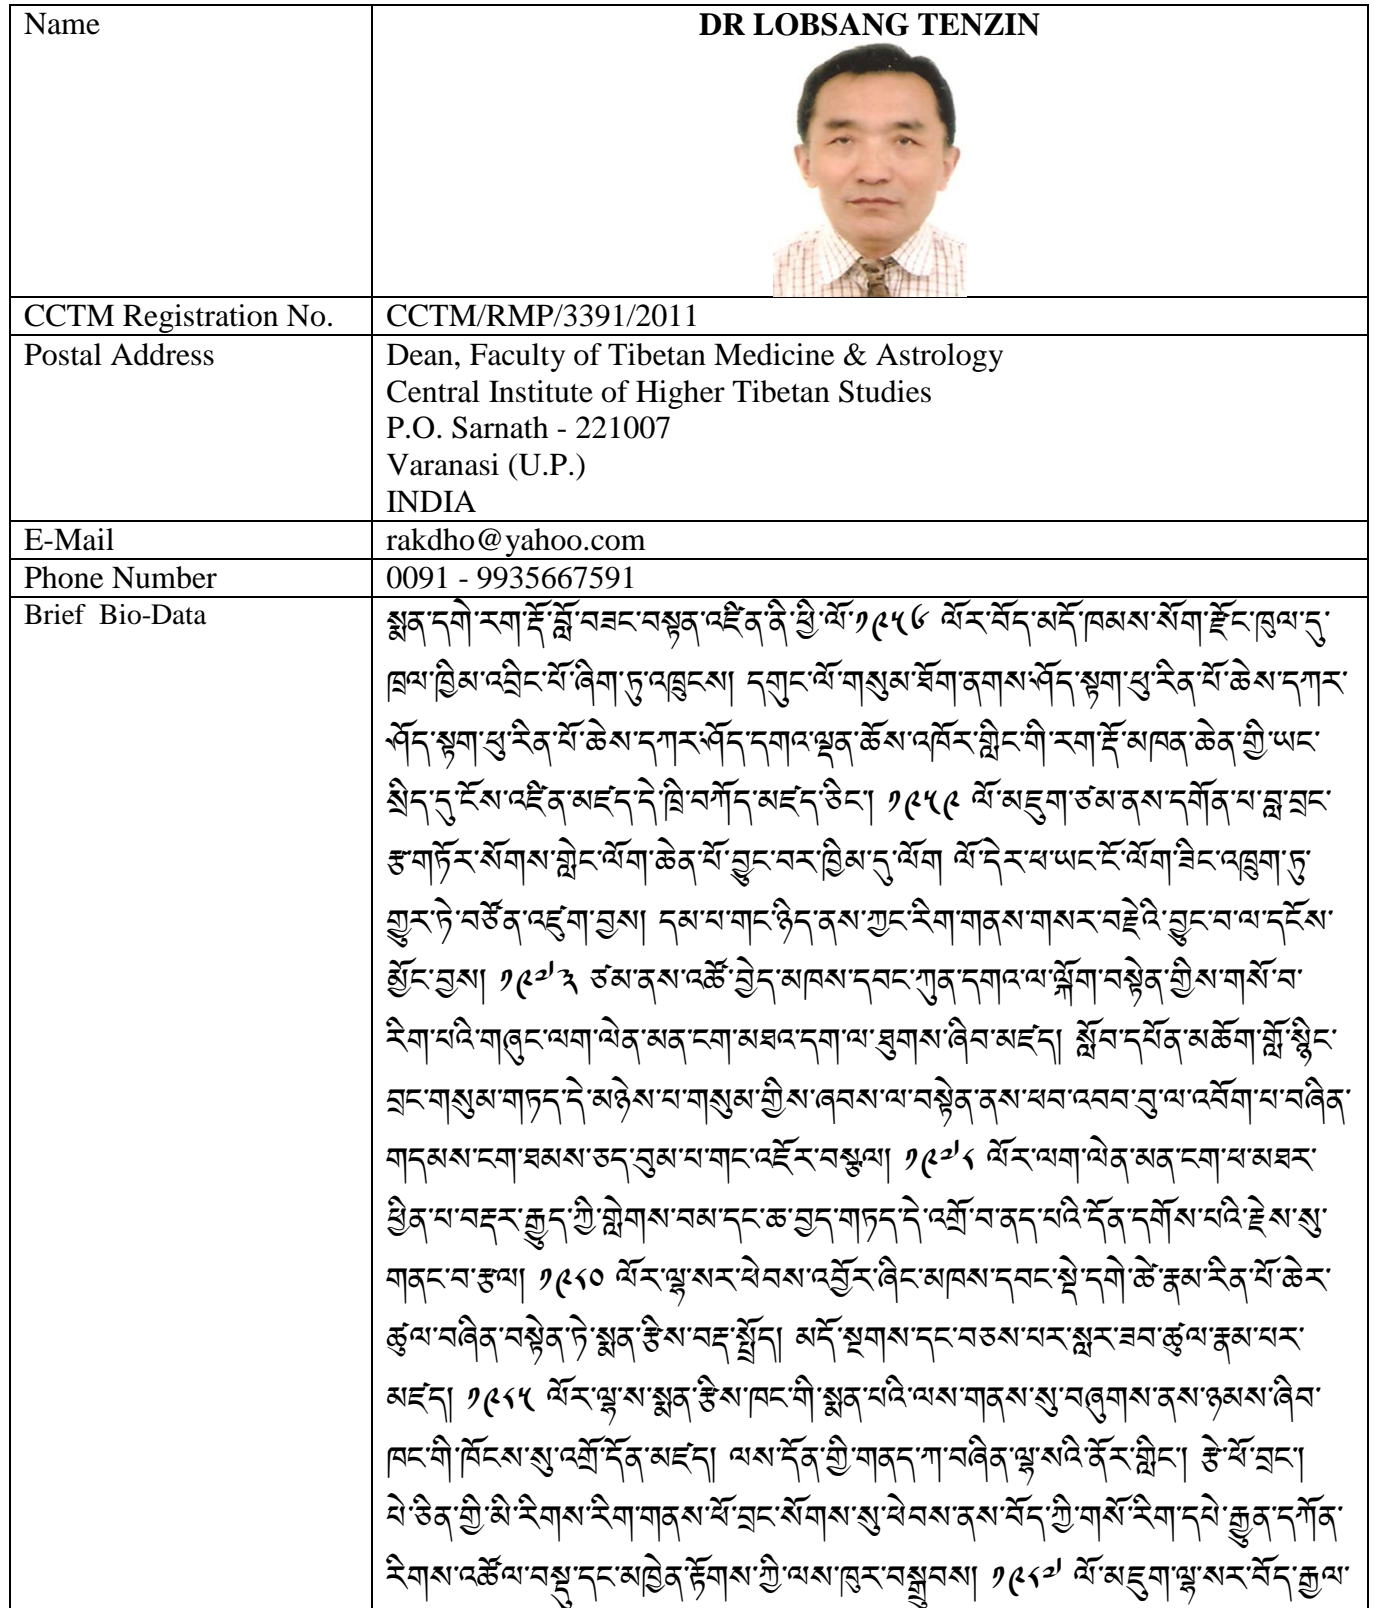 Name
DR LOBSANG TENZIN
CCTM Registration No.
CCTM/RMP/3391/2011
Postal Address
Dean, Faculty of Tibetan Medicine & Astrology
Central Institute of Higher Tibetan Studies
P.O. Sarnath - 221007
Varanasi (U.P.)
INDIA
E-Mail
rakdho@yahoo.com
Phone Number
0091 - 9935667591
Brief Bio-Data
སྨན་དགེ་རག་རྡོ་བློ་བཟང་བསྟན་འཛིན་ནི་ཕྱི་ལོ་༡༩༥༦ ལོར་བོད་མདོ་ཁམས་སོག་རྫོང་ཁུལ་དུ་
ཁྲལ་ཁྱིམ་འབྲིང་པོ་ཞིག་ཏུ་འཁྲུངས། དགུང་ལོ་གསུམ་ཐོག་ནགས་ཤོད་སྟག་ཕུ་རིན་པོ་ཆེས་དཀར་
ཤོད་སྟག་ཕུ་རིན་པོ་ཆེས་དཀར་ཤོད་དགའ་ལྡན་ཆོས་འཁོར་གླིང་གི་རག་རྡོ་མཁན་ཆེན་གྱི་ཡང་
སྲིད་དུ་ངོས་འཛིན་མཛད་དེ་ཁྲི་བཀོད་མཛད་ཅིང་། ༡༩༥༩ ལོ་མཇུག་ཙམ་ནས་དགོན་པ་བླ་བྲང་
རྩ་གཏོར་སོགས་གླེང་ལོག་ཆེན་པོ་བྱུང་བར་ཁྱིམ་དུ་ལོག ལོ་དེར་ཕ་ཡང་ངོ་ལོག་ཟིང་འཁྲུག་ཏུ་
གྱུར་ཏེ་བཙོན་འཇུག་བྱས། དམ་པ་གང་ཉིད་ནས་ཀྱང་རིག་གནས་གསར་བརྗེའི་བྱུང་བ་ལ་དངོས་
མྱོང་བྱས། ༡༩༧༣ ཙམ་ནས་འཚོ་བྱེད་མཁས་དབང་ཀུན་དགའ་ལ་ལྐོག་བསྟེན་གྱིས་གསོ་བ་
རིག་པའི་གཞུང་ལག་ལེན་མན་ངག་མཐའ་དག་ལ་ཐུགས་ཞིབ་མཛད། སློབ་དཔོན་མཆོག་གློ་སྙིང་
བྲང་གསུམ་གཏད་དེ་མཉེས་པ་གསུམ་གྱིས་ཞབས་ལ་བསྟེན་ནས་ཕབ་འབབ་བུ་ལ་འབོག་པ་བཞིན་
གདམས་ངག་ཐམས་ཅད་བུམ་པ་གང་འཛོར་བསྐུལ། ༡༩༧༨ ལོར་ལག་ལེན་མན་ངག་ཕ་མཐར་
ཕྱིན་པ་བརྡར་རྒྱུད་ཀྱི་གླེགས་བམ་དང་ཆ་བྱད་གཏད་དེ་འགྲོ་བ་ནད་པའི་དོན་དགོས་པའི་རྗེས་སུ་
གནང་བ་རྩལ། ༡༩༨༠ ལོར་ལྷ་སར་ཕེབས་འབྱོར་ཞིང་མཁས་དབང་སྡེ་དགེ་ཚེ་རྣམ་རིན་པོ་ཆེར་
ཚུལ་བཞིན་བསྟེན་ཏེ་སྨན་རྩིས་བརྡ་སྤྲོད། མདོ་སྔགས་དང་བཅས་པར་སླར་ཟབ་ཚུལ་རྣམ་པར་
མཛད། ༡༩༨༥ ལོར་ལྷ་ས་སྨན་རྩིས་ཁང་གི་སྨན་པའི་ལས་གནས་སུ་བཞུགས་ནས་ཉམས་ཞིབ་
ཁང་གི་ཁོངས་སུ་འགྲོ་དོན་མཛད། ལས་དོན་གྱི་གནད་ཀ་བཞིན་ལྷ་སའི་ནོར་གླིང་། རྩེ་ཕོ་བྲང་།
པེ་ཅིན་གྱི་མི་རིགས་རིག་གནས་ཕོ་བྲང་སོགས་སུ་ཕེབས་ནས་བོད་ཀྱི་གསོ་རིག་དཔེ་རྒྱུན་དཀོན་
རིགས་འཚོལ་བསྡུ་དང་མཁྱེན་རྟོགས་ཀྱི་ལས་ཁུར་བསྒྲུབས། ༡༩༨༧ ལོ་མཇུག་ལྷ་སར་བོད་རྒྱལ་